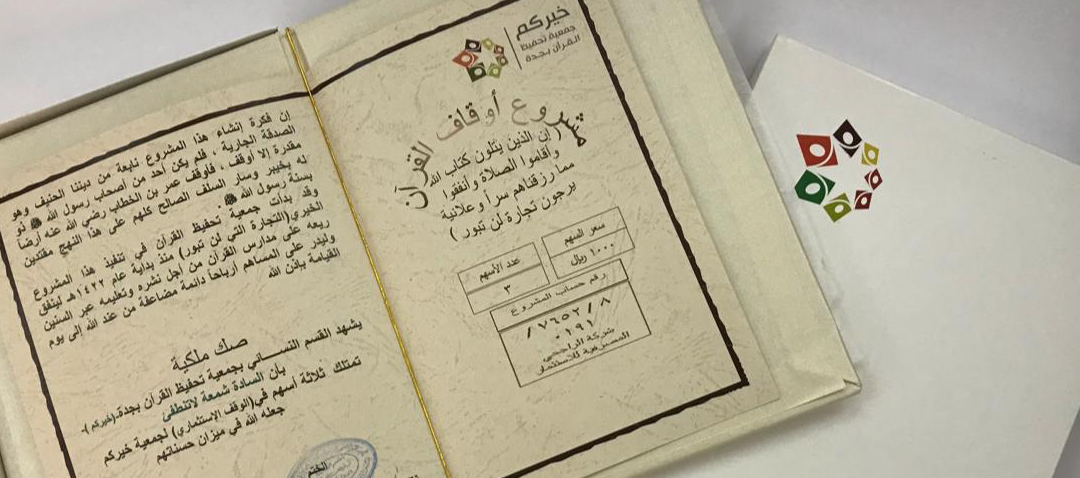 خيركم
جمعية تحفيظ
القرآن بجدة
مشروع أوقاف القرآن
( إن الذين يتلون كتاب الله
وأقاموا الصلاة وأنفقوا
مما رزقناهم سراً وعلانية
يرجون تجارة لن تبور )
سعر السهم
١٠٠٠ ريال
عدد الأسهم
٣
رقم حساب المشروع
٨ / ٧٦٥٢ /
٠١٩١
شركة الراجحي
المصرفية للاستثمار
إن فكرة إنشاء هذا المشروع نابعة من ديننا الحنيف وهو
الصدقة الجارية ، فلم يكن أحد من أصحاب رسول الله ﷺ لو
مقدرة إلا أوقف ، فأوقف عمر بن الخطاب رضي الله عنه أرضاً
له بخيبر وسار السلف الصالح كلهم على هذا النهج مقتدين
بسنة رسول الله ﷺ
وقد بدأت جمعية تحفيظ القرآن في تنفيذ هذا المشروع
الخيري(التجارة التي لن تبور) منذ بداية عام ١٤٢٢هـ لينفق
ريعه على مدارس القرآن من أجل نشره وتعليمه عبر السنين
وليدر على المساهم أرباحاً دائمة مضاعفة من عند الله إلى يوم
القيامة بإذن الله
صك ملكية
يشهد القسم النسائي بجمعية تحفيظ القرآن بجدة-(خيركم)-
بأن السادة شمعة لاتنطفئ
تمتلك ثلاثة أسهم في(الوقف الإستثماري) لجمعية خيركم
جعله الله في ميزان حسناتهم
الختم